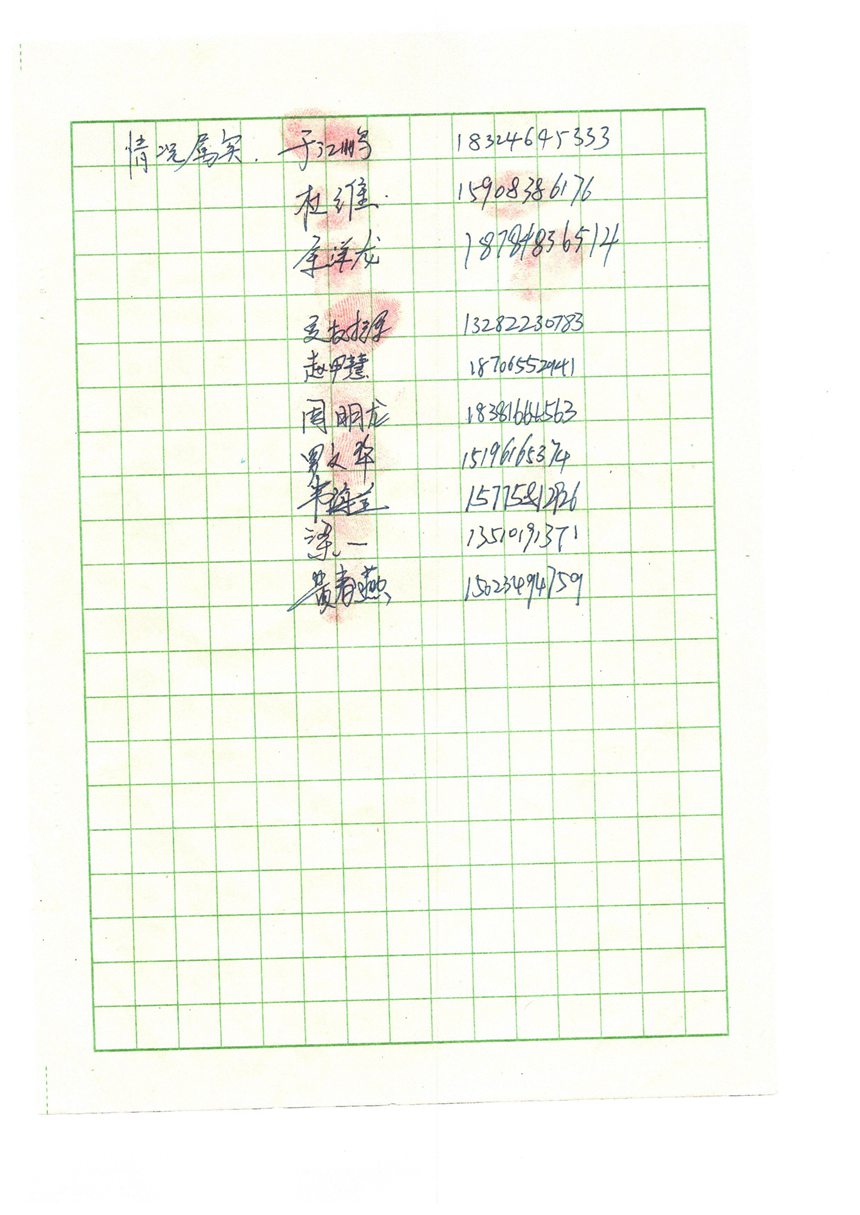 情况属实. 于江鹏 18324645333
杜维. 15908386176
李洋龙 18784836514
13282230783
赵甲慧 18706552941
周明龙 18381666563
罗文华 15196165374
韦海兰
梁一 13510191371
黄春燕 15023494759